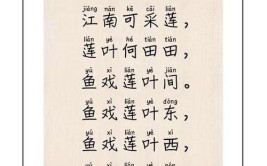 jiāng nán kě cǎi lián
江南可采莲，
lián yè hé tián tián
莲叶何田田，
yú xì lián yè jiān
鱼戏莲叶间。
yú xì lián yè dōng
鱼戏莲叶东，
yú xì lián yè xī
鱼戏莲叶西，